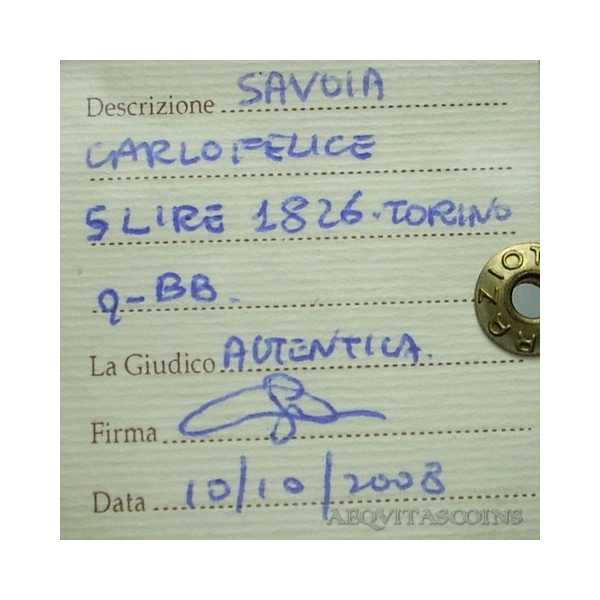 Descrizione SAVOIA
CARLO FELICE
5 LIRE 1826. TORINO
q-BB.
La Giudico AUTENTICA.
Firma
Data 10/10/2008
AEQVITASCOINS